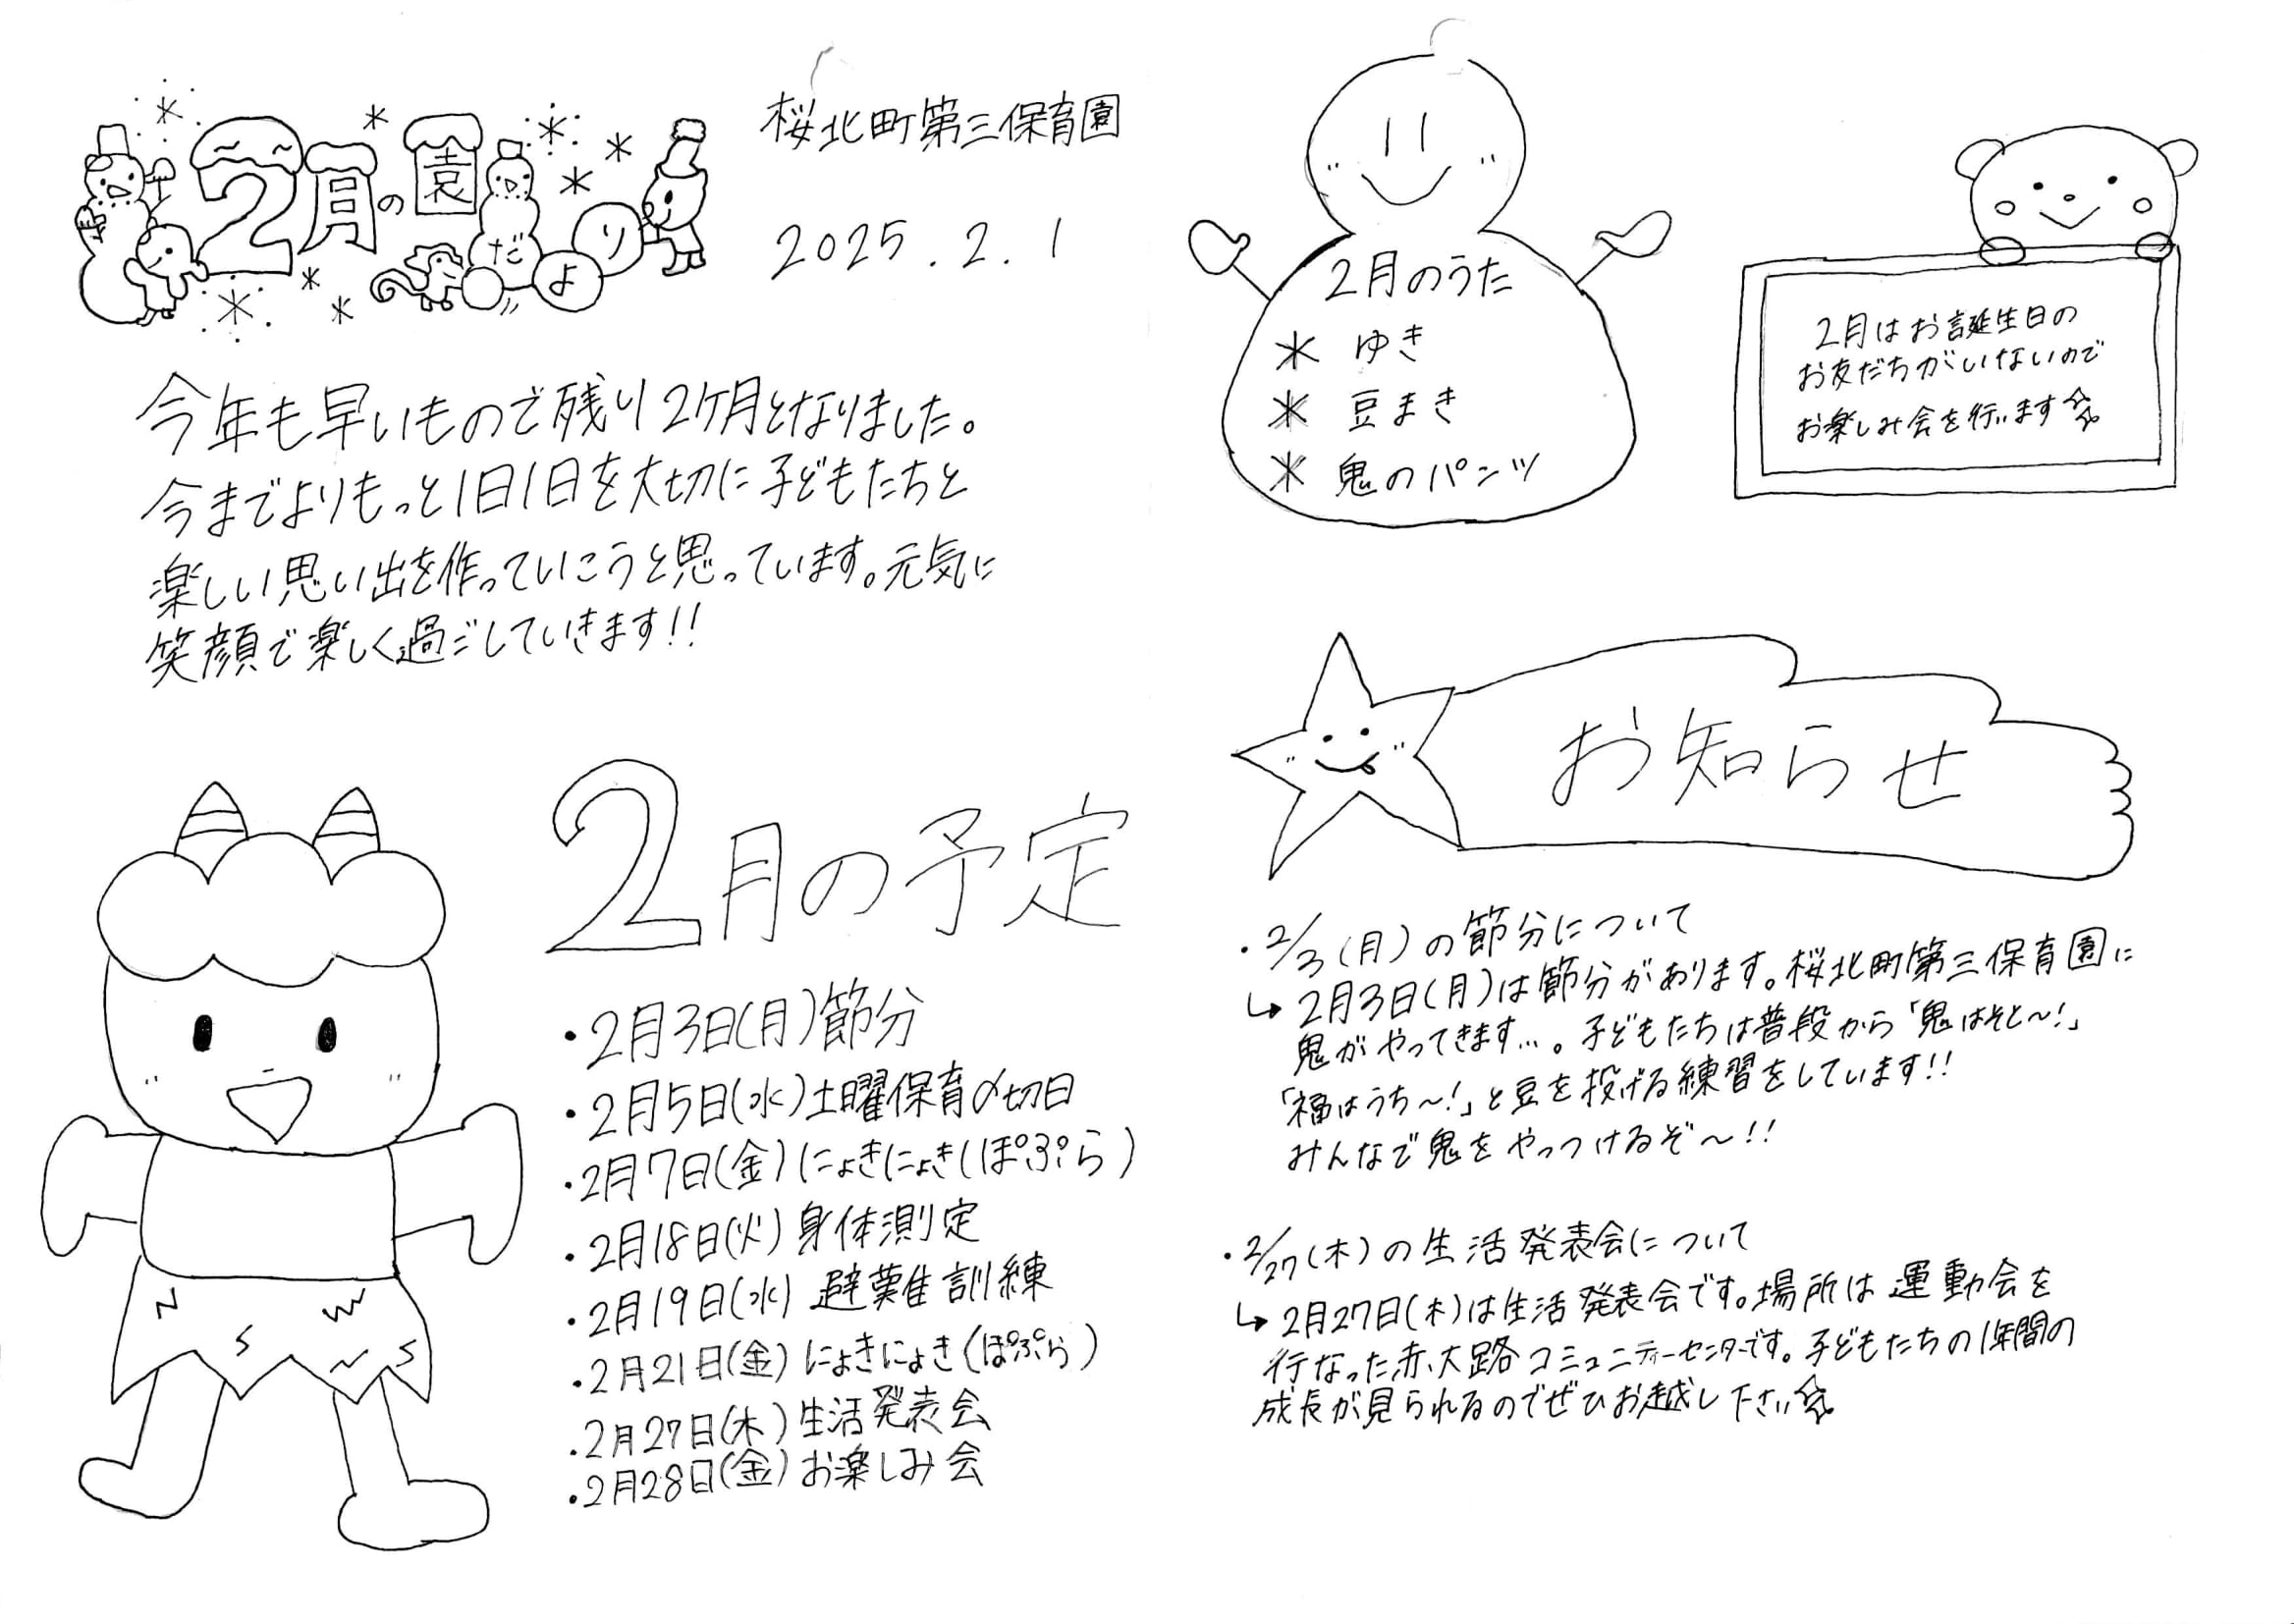 2月の園だより
桜北町第三保育園
2025.2.1
今年も早いもので残り2ケ月となりました。
今までよりもっと1日1日を大切に子どもたちと
楽しい思い出を作っていこうと思っています。元気に
笑顔で楽しく過ごしていきます!!
2月の予定
・2月3日(月)節分
・2月5日(水)土曜保育〆切日
・2月7日(金)にょきにょき(ぽぷら)
・2月18日(火)身体測定
・2月19日(水)避難訓練
・2月21日(金)にょきにょき(ぽぷら)
・2月27日(木)生活発表会
・2月28日(金)お楽しみ会
2月のうた
* ゆき
* 豆まき
* 鬼のパンツ
2月はお誕生日の
お友だちがいないので
お楽しみ会を行います☆
お知らせ
・2/3(月)の節分について
↳2月3日(月)は節分があります。桜北町第三保育園に
鬼がやってきます…。子どもたちは普段から「鬼はそと〜!」
「福はうち〜!」と豆を投げる練習をしています!!
みんなで鬼をやっつけるぞ〜!!
・2/27(木)の生活発表会について
↳2月27日(木)は生活発表会です。場所は運動会を
行なった赤大路コミュニティーセンターです。子どもたちの1年間の
成長が見られるのでぜひお越し下さい☆